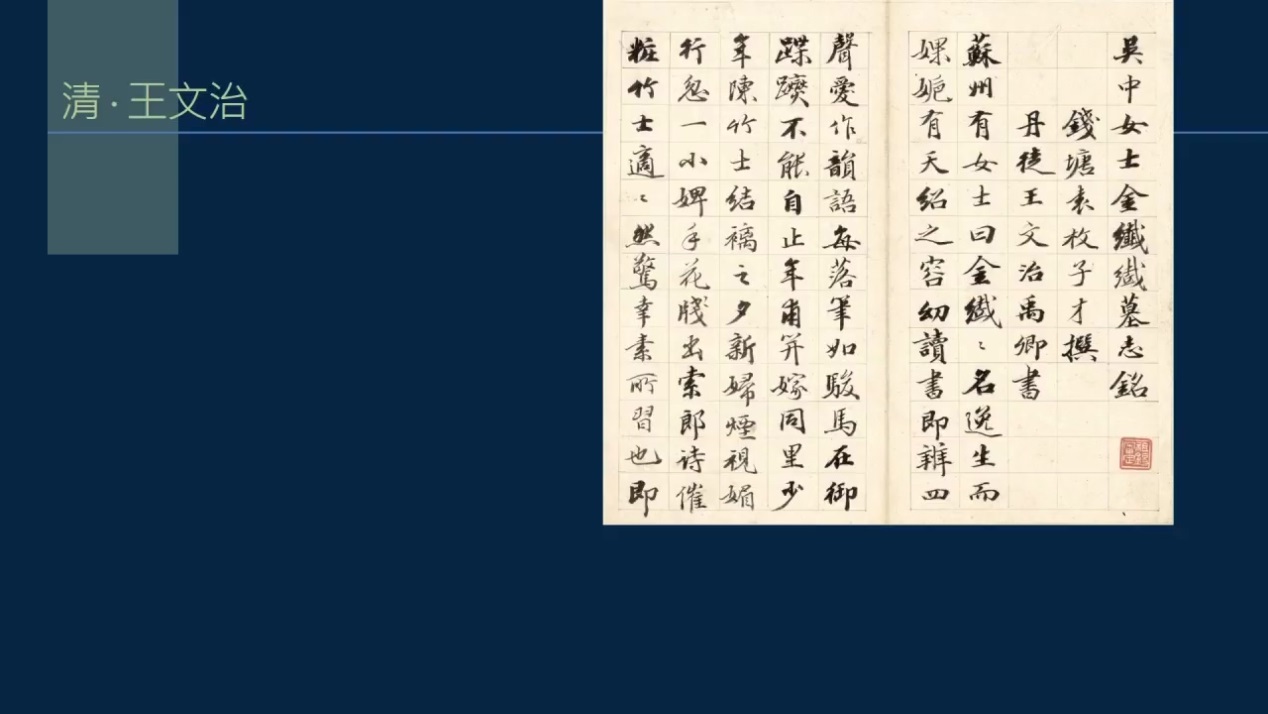 清·王文治
吳中女士金纖纖墓志銘
錢塘袁枚子才撰
丹徒王文治禹卿書
蘇州有女士曰金纖〻名逸生而
婐㛂有天紹之容幼讀書即辨四
聲愛作韻語每落筆如駿馬在御
蹀躞不能自止年甫笄嫁同里少
年陳竹士結褵之夕新婦煙視媚
行忽一小婢手花牋出索郎詩催
粧竹士適〻然驚幸素所習也即